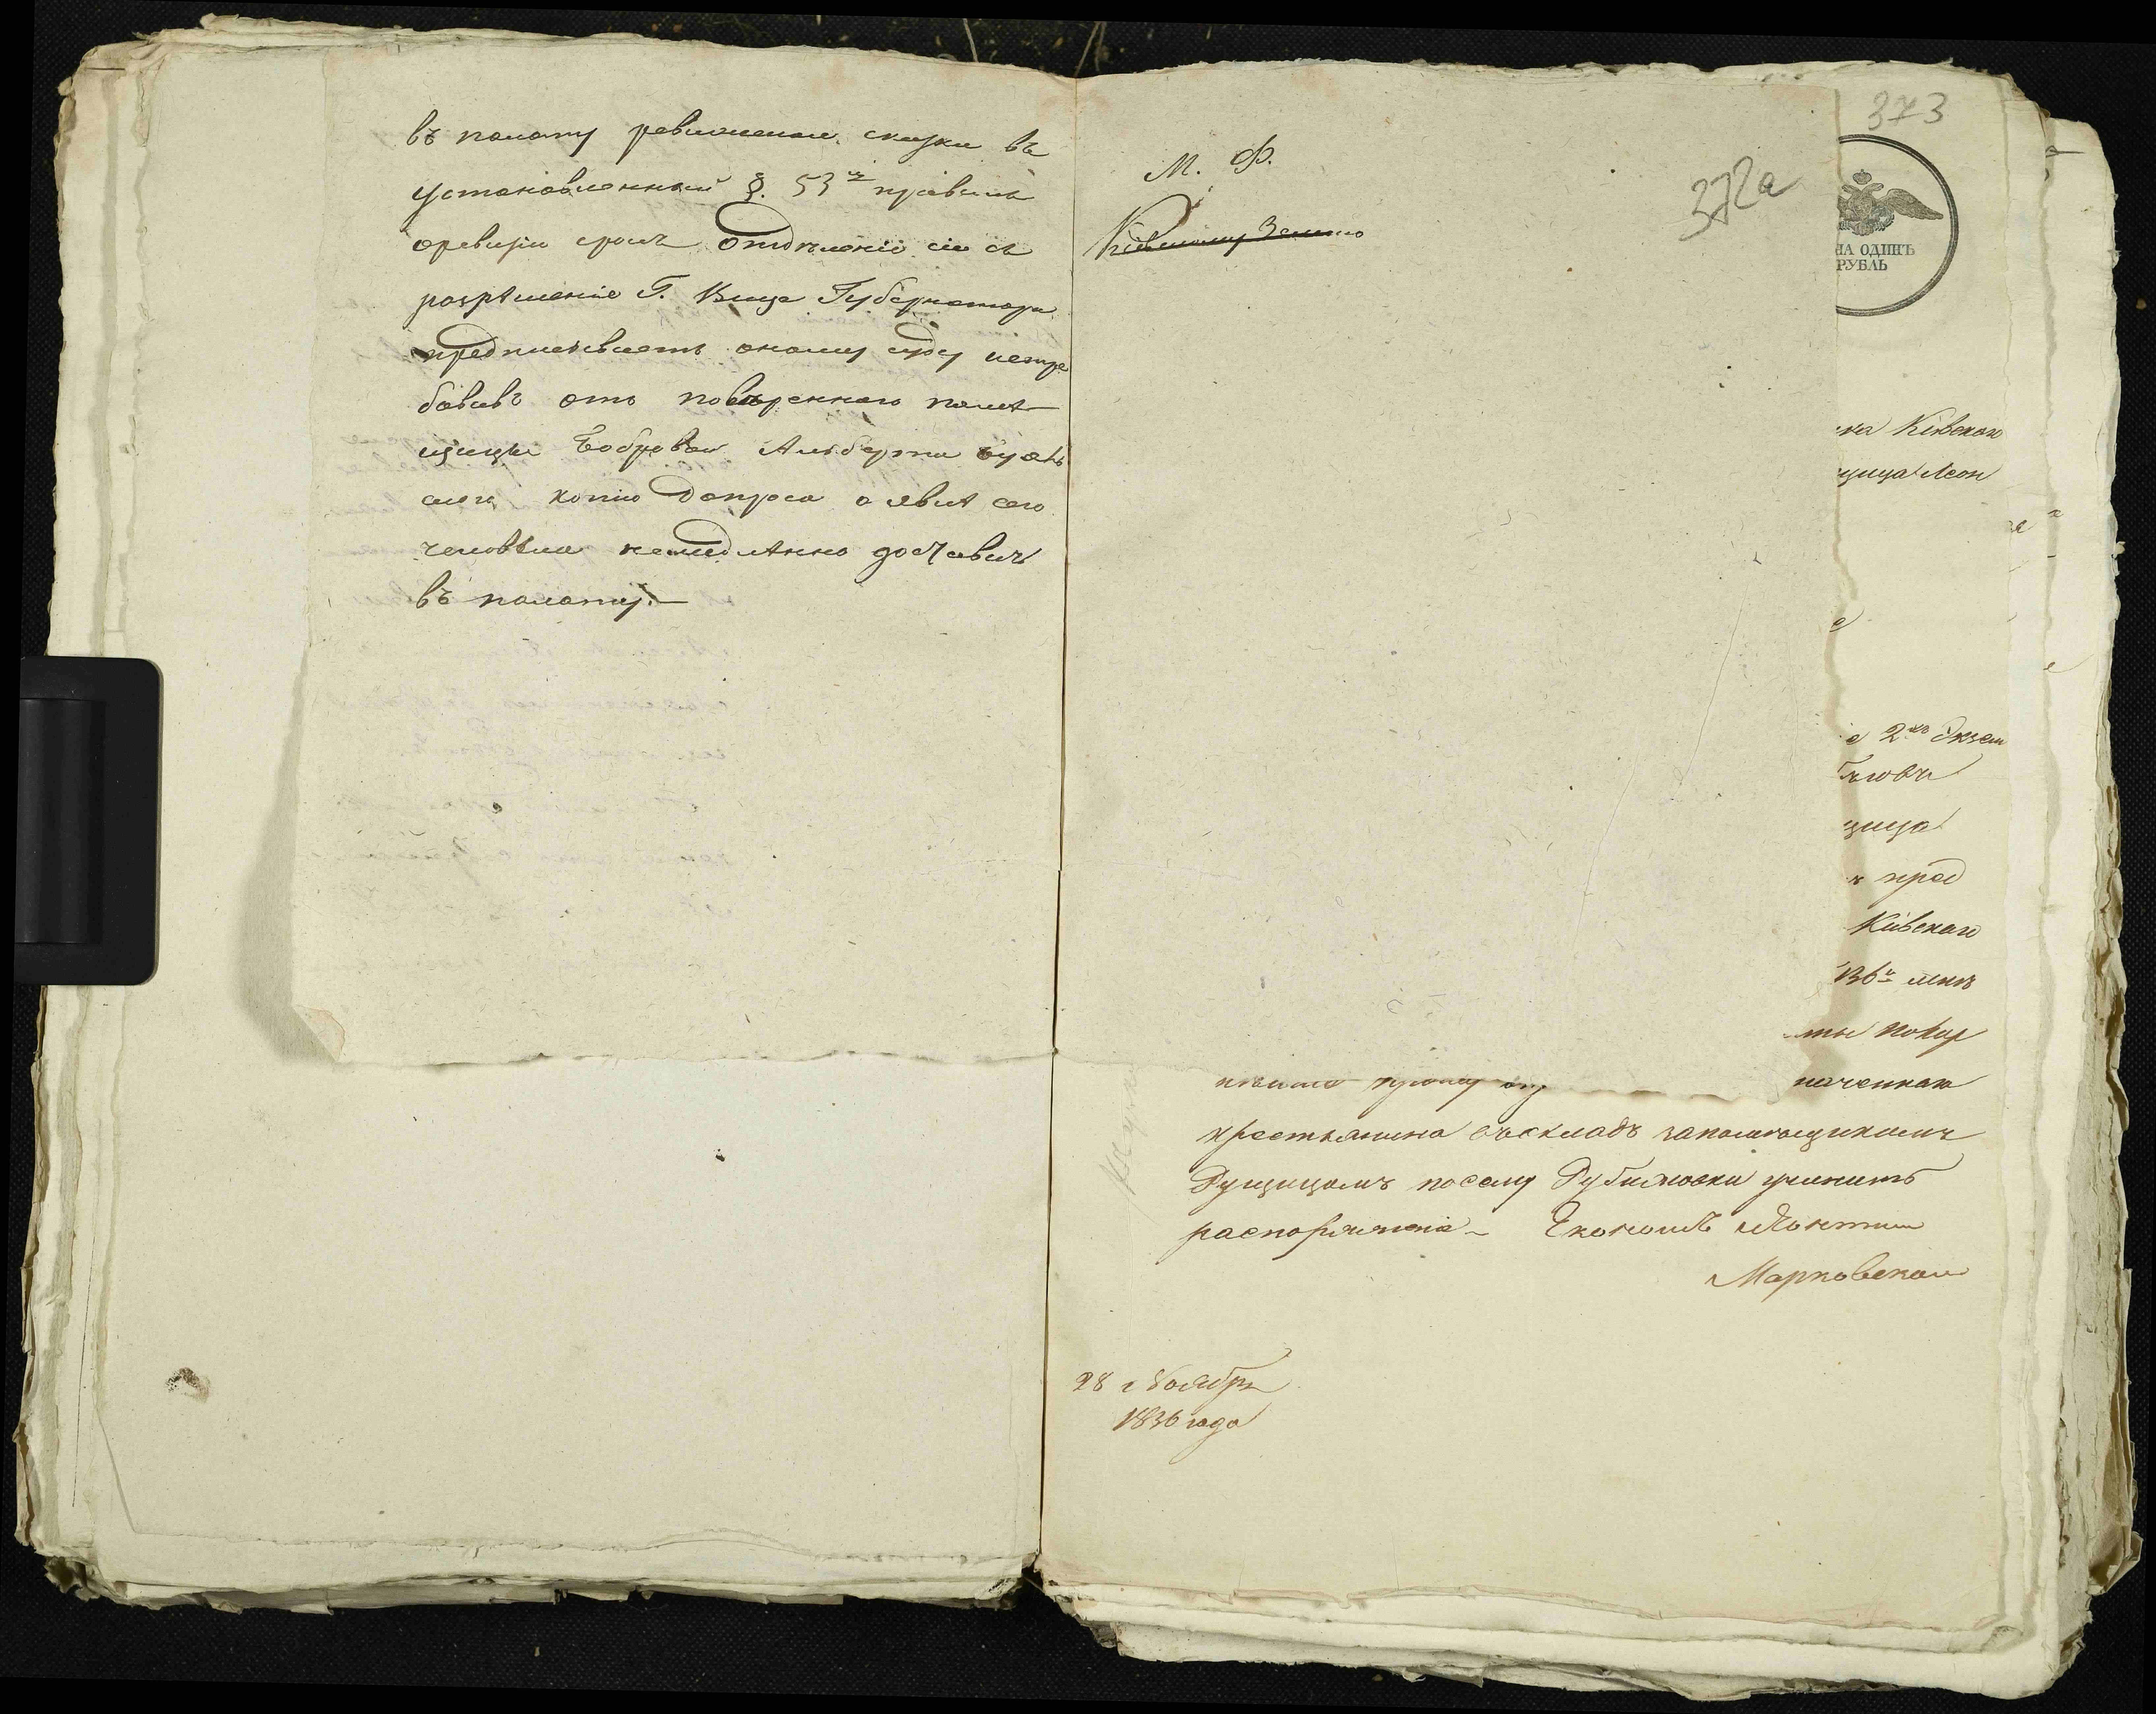 въ палату ревизская сказки въ
установленный §. 53м правилъ
оревизіи срокъ Отдѣленіе сіе съ
разрѣшенія Г. Вице Губернатора
предписываетъ оному суду истре
бовавъ отъ повѣреннаго помѣ
щицы Бобровой Альберта
копію допроса о явкѣ сего
человѣка немедлѣнно доставить
въ палату.
М. Ф.
Кіевскому Земско
372а
373
НА ОДИНЪ
РУБЛЬ
ка Кіевской
щица Леон
е 2хъ Экзем
щица
пред
Кіевскаго
наченная
крестьянина
Рущицомъ посему учинить
распоряженіе Економъ
Марковскій
28 Ноября
1836 года